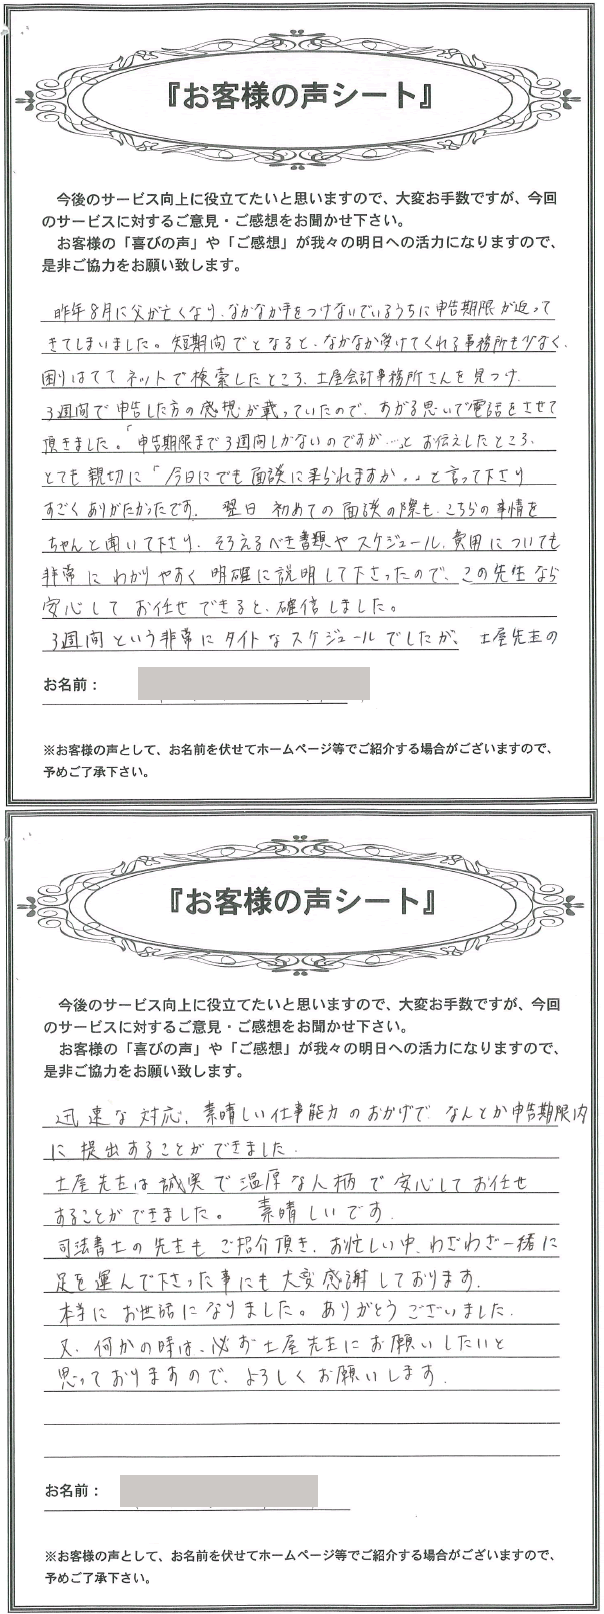 『お客様の声シート』
今後のサービス向上に役立てたいと思いますので、大変お手数ですが、今回
のサービスに対するご意見・ご感想をお聞かせ下さい。
お客様の「喜びの声」や「ご感想」が我々の明日への活力になりますので、
是非ご協力をお願い致します。
昨年8月に父が亡くなり、なかなか手をつけないでいるうちに申告期限が近って
きてしまいました。短期間でとなると、なかなか受けてくれる事務所も少なく、
困りはてて ネットで検索したところ、土屋会計事務所さんを見つけ
3週間で申告した方の感想が載っていたので、すがる思いで電話をさせて
頂きました。「申告期限まで3週間しかないのですが…」とお伝えしたところ、
とても親切に「今日にでも面談に来られますか。」と言って下さり
すごくありがたかったです。翌日 初めての面談の際も、こちらの事情を
ちゃんと聞いて下さり、そろえるべき書類やスケジュール、費用についても
非常にわかりやすく 明確に説明して下さったので、この先生なら
安心して お任せできると、確信しました。
3週間という非常にタイトなスケジュールでしたが、土屋先生の
お名前：
※お客様の声として、お名前を伏せてホームページ等でご紹介する場合がございますので、
予めご了承下さい。
『お客様の声シート』
今後のサービス向上に役立てたいと思いますので、大変お手数ですが、今回
のサービスに対するご意見・ご感想をお聞かせ下さい。
お客様の「喜びの声」や「ご感想」が我々の明日への活力になりますので、
是非ご協力をお願い致します。
迅速な対応、素晴しい仕事能力のおかげで なんとか申告期限内
に提出することができました。
土屋先生は誠実で温厚な人柄で安心してお任せ
することができました。 素晴しいです。
司法書士の先生もご紹介頂き、お忙しい中、わざわざ一緒に
足を運んで下さった事にも大変感謝しております。
本当に お世話になりました。ありがとうございました。
又、何かの時は、必ず土屋先生にお願いしたいと
思っておりますので、よろしくお願いします。
お名前：
※お客様の声として、お名前を伏せてホームページ等でご紹介する場合がございますので、
予めご了承下さい。